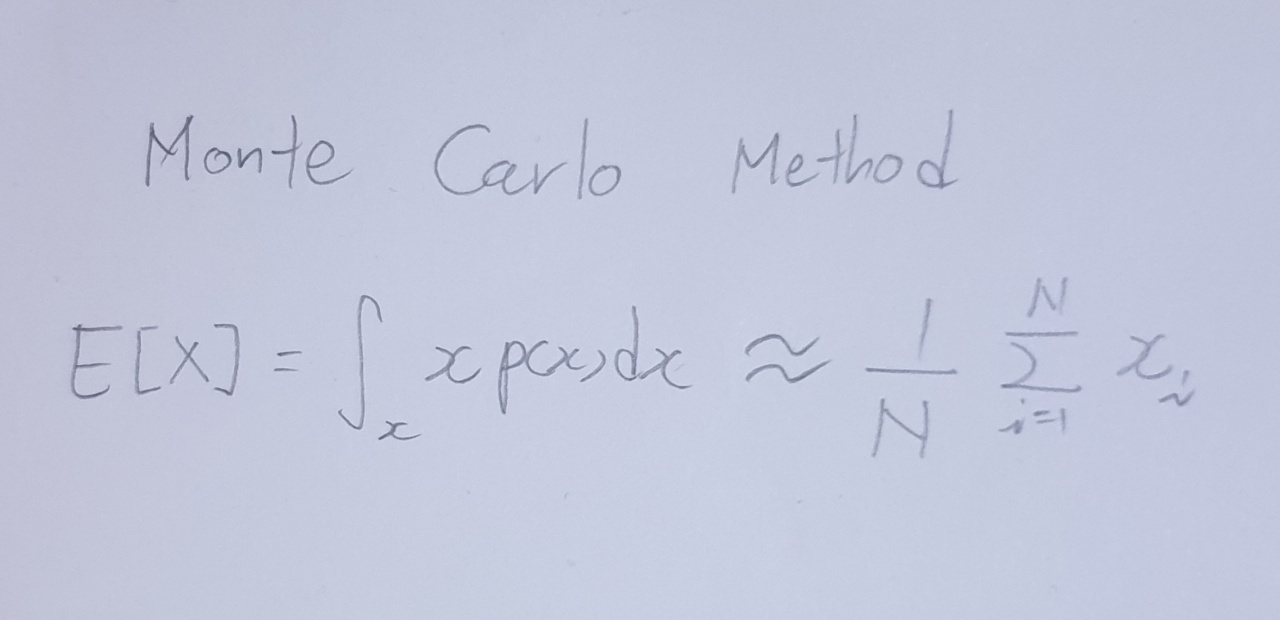 Monte Carlo Method
E[X] = ∫_x x p(x) dx ≈ 1/N ∑_{i=1}^{N} x_i